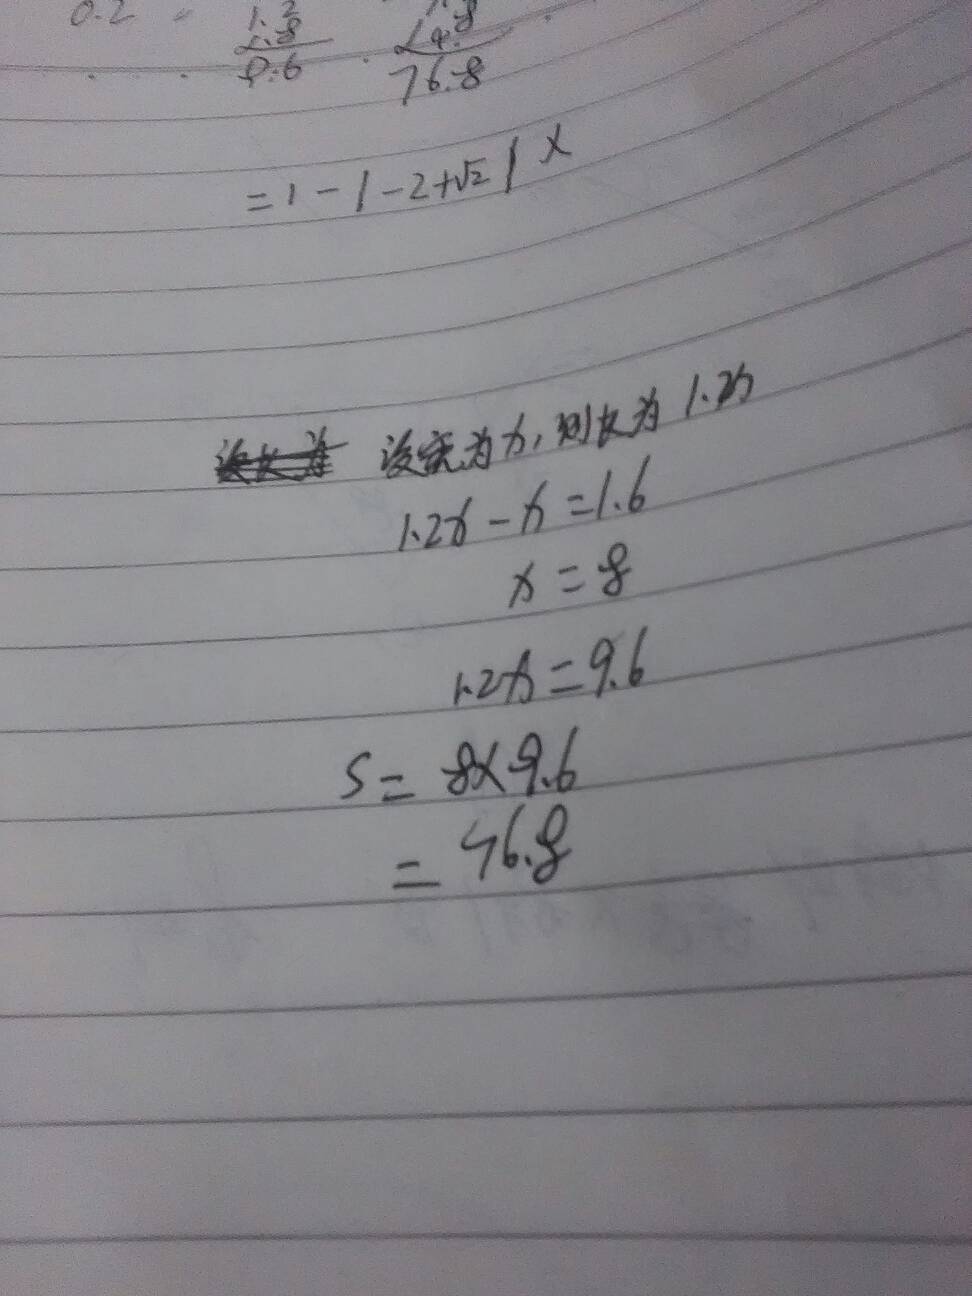 0.2
1.2
8
9.6
76.8
=1-|-2+√2| x
设宽为x,则长为1.2x
1.2x-x=1.6
x=8
1.2x=9.6
S=8×9.6
=76.8